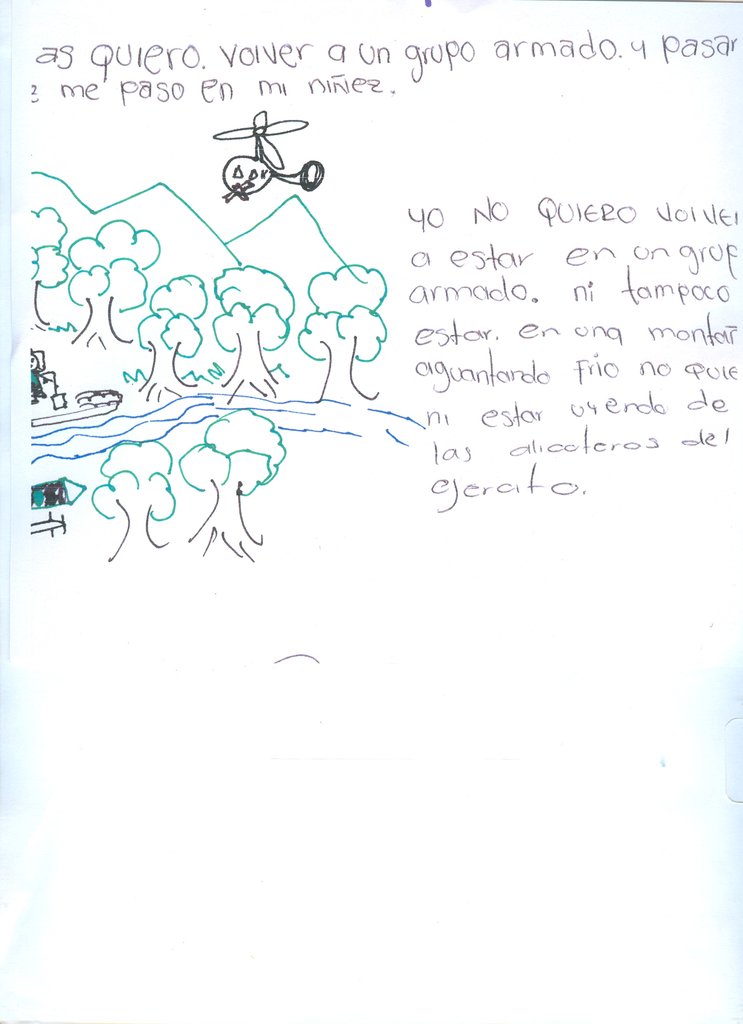 as quiero. volver a un grupo armado. y pasar
me paso en mi niñez.
yo no quiero volver
a estar en un grup
armado. ni tampoco
estar. en una montañ
aguantando frio no quie
ni estar uyendo de
las alicoteros del
ejercito.